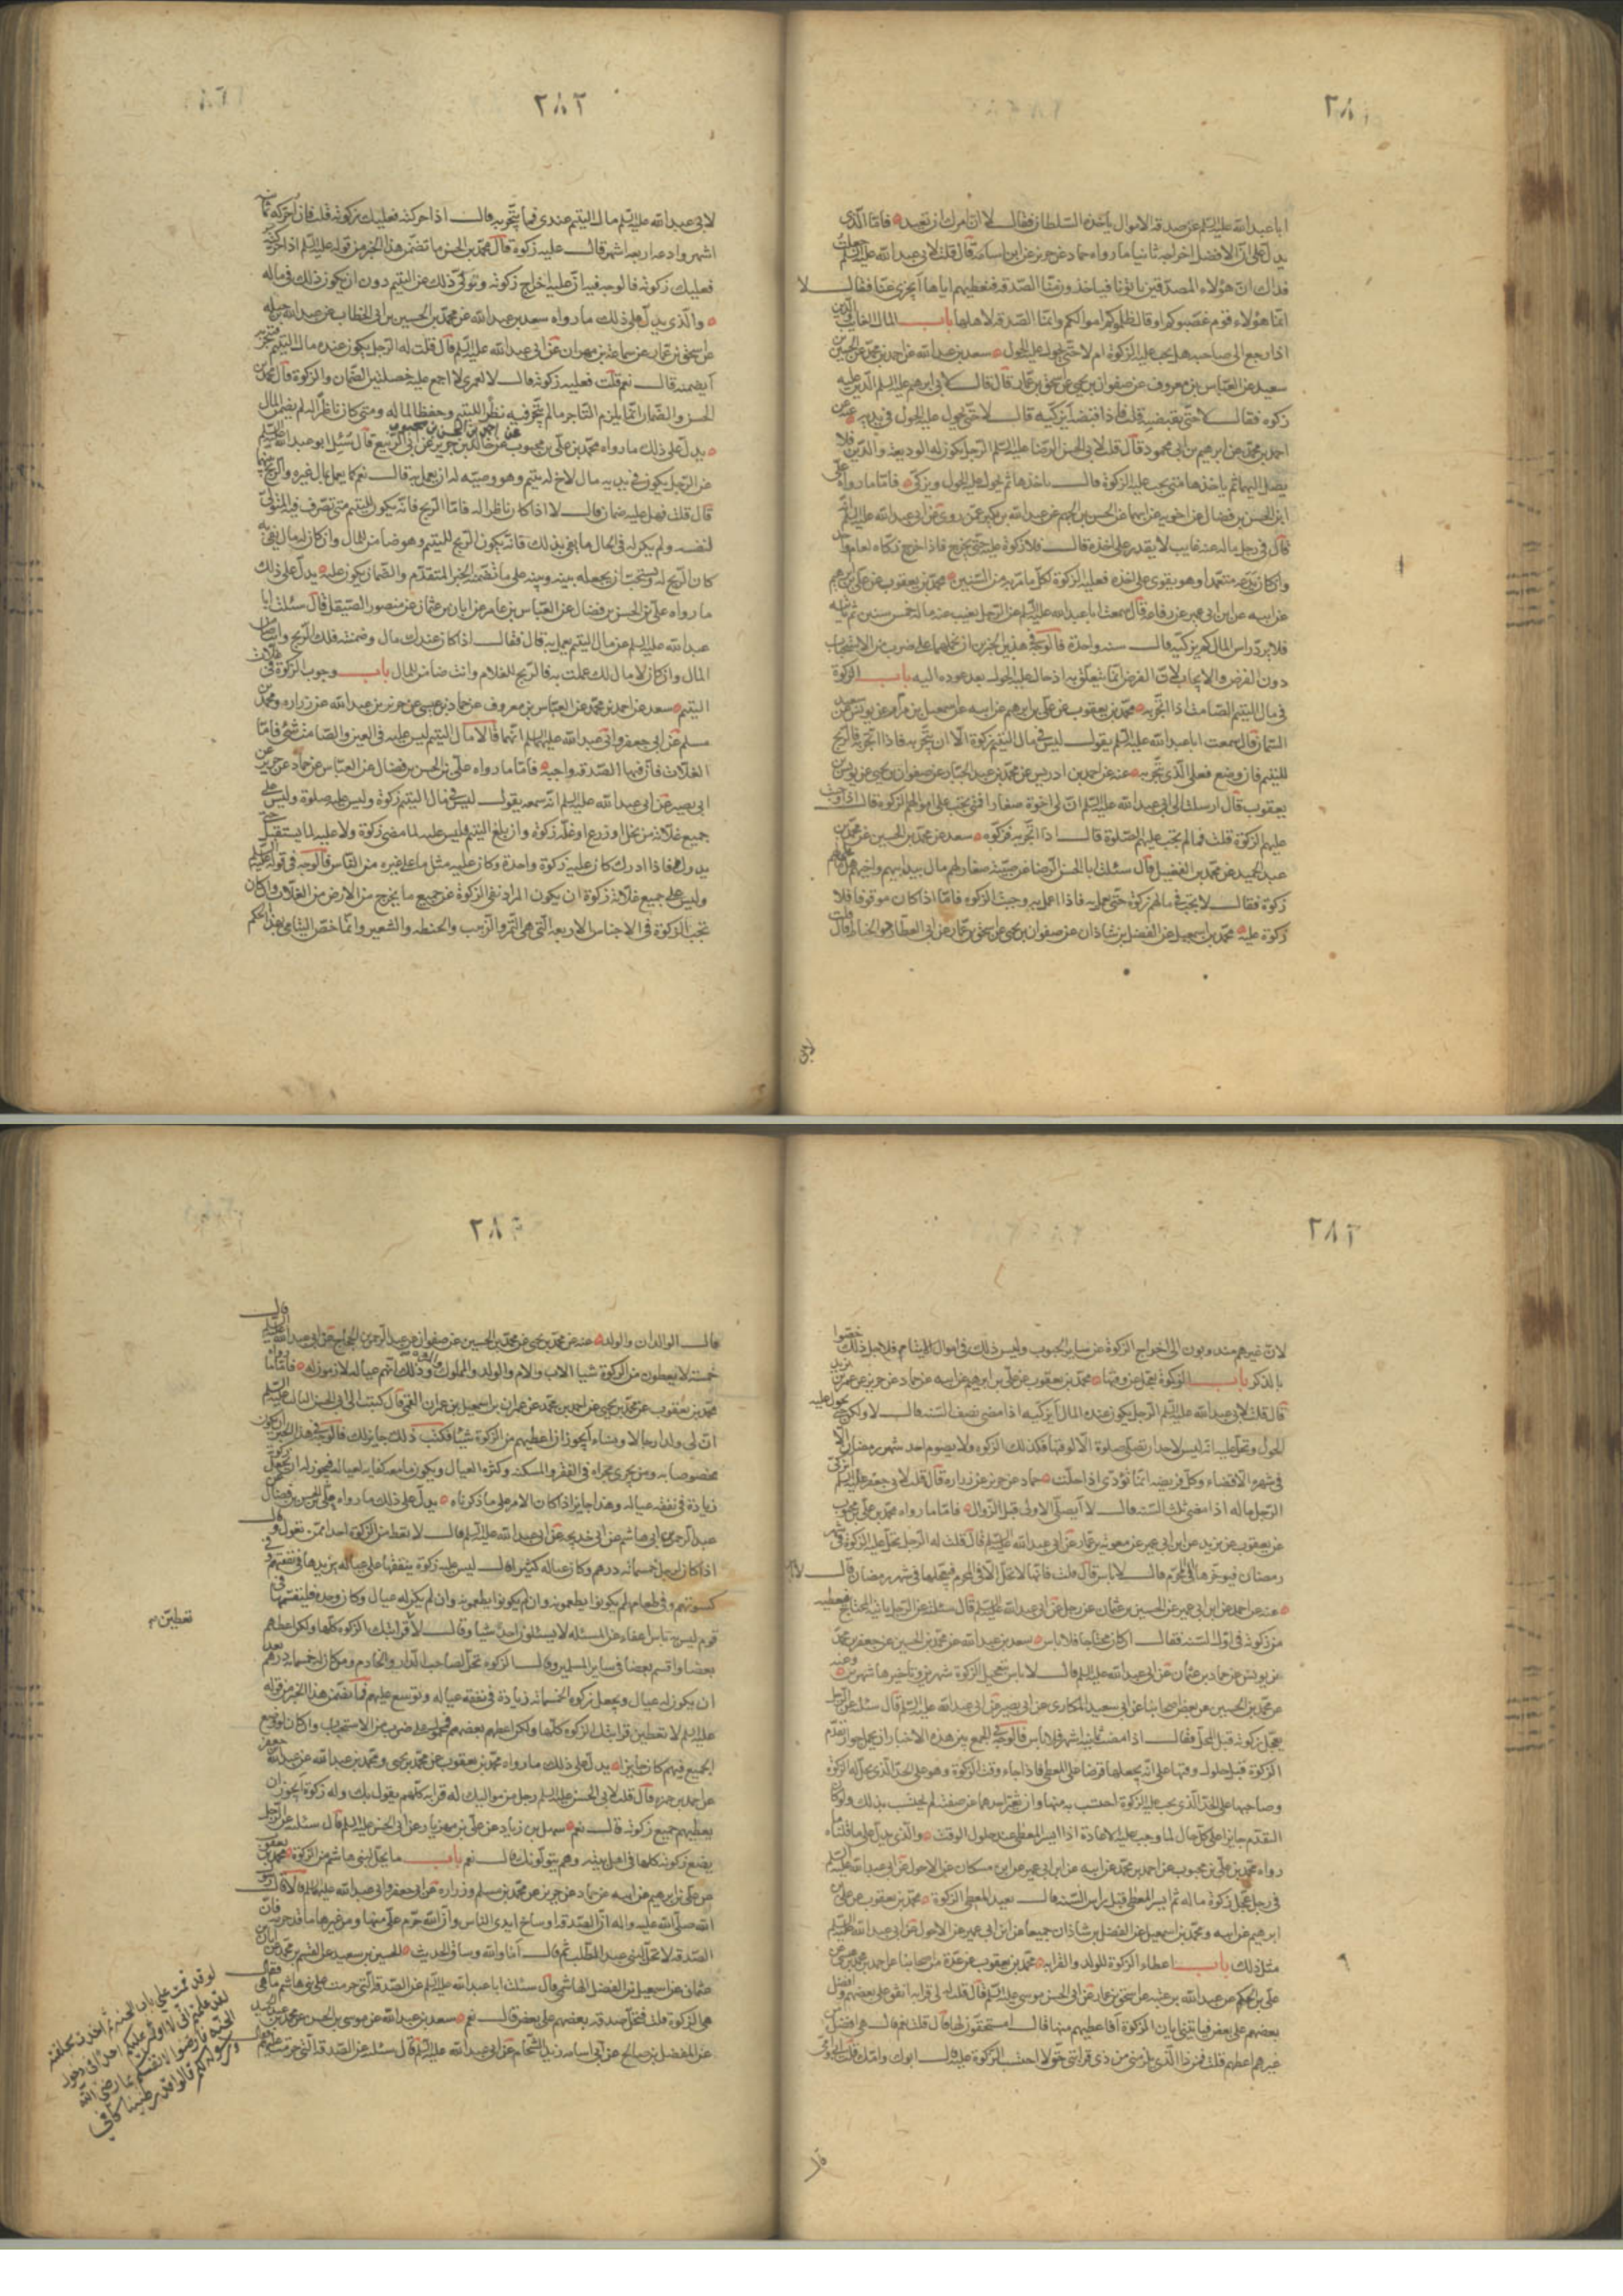 ٢٨١
ابا عبد الله عليه السلم عن صدقة الاموال يأخذها السلطان فقال لا آمرك ان تعيد فامّا الّذى
يدل على انّ الافضل اخراجها ثانيا ما رواه حماد عن حريز عن ابى اسامة قال قلت لابى عبد الله عليه السلم جعلت
فداك انّ هؤلاء المصدّقين يأتونا فيأخذون منّا الصّدقة فنعطيهم اياها أتجزى عنّا فقال لا
انّما هؤلاء قوم غصبوكم او قال ظلموكم اموالكم وانّما الصّدقة لاهلها باب المال الغايب والدّين
اذا رجع الى صاحبه هل يجب عليه الزكوة ام لا حتّى يحول عليه الحول سعد بن عبد الله عن احمد بن محمّد عن الحسين بن
سعيد عن العبّاس بن معروف عن صفوان بن يحيى عن اسحق بن عمّار قال قلت لابى ابرهيم عليه السلم الدّين عليه
زكوه فقال لا حتّى يقبضه قلت فاذا قبضه أيزكّيه قال لا حتّى يحول عليه الحول فى يديه عنه عن
احمد بن محمّد عن ابرهيم بن ابى محمود قال قلت لابى الحسن الرّضا عليه السلم الرّجل يكون له الوديعة والدّين فلا
يصل اليهما ثم يأخذهما متى يجب عليه الزكوة قال يأخذهما ثم يحول عليه الحول ويزكّى فامّا ما رواه علىّ
ابن الحسن بن فضال عن اخويه عن ابيهما عن الحسن بن الجهم عن عبد الله بن بكير عمّن رواه عن ابى عبد الله عليه السلم انّه
قال فى رجل ماله عنه غايب لا يقدر على اخذه قال فلا زكوة عليه حتّى يخرج فاذا خرج زكّاه لعام واحد
وان كان يدعه متعمّدا وهو يقوى على اخذه فعليه الزكوة لكلّ ما مرّ به من السّنين محمّد بن يعقوب عن علىّ بن ابرهيم
عن ابيه عن ابن ابى عمير عن رفاعة قال سمعت ابا عبد الله عليه السلم عن الرّجل يغيب عنه ماله خمس سنين ثم يأتيه
فلا يردّ راس المال كم يزكّيه قال سنه واحدة فالوجه فى هذين الخبرين ان نحملهما على ضرب من الاستحباب
دون الفرض والايجاب لانّ الفرض انّما يتعلّق به اذا حال عليه الحول بعد عوده اليه باب الزكوة
فى مال اليتيم الصّامت اذا اتّجر به محمّد بن يعقوب عن علىّ بن ابرهيم عن ابيه عن اسمعيل بن مرّار عن يونس عن
السمّان قال سمعت ابا عبد الله عليه السلم يقول ليس فى مال اليتيم زكوة الّا ان يتّجر به فاذا اتّجر به فالرّبح
لليتيم فان وضع فعلى الّذى يتّجر به عنه عن احمد بن ادريس عن محمّد بن عبد الجبّار عن صفوان بن يحيى عن يونس بن
يعقوب قال ارسلت الى ابى عبد الله عليه السلم انّ لى اخوة صغارا فمتى يجب على اموالهم الزكوة قال اذا وجبت
عليهم الزكوة قلت فما لم يجب عليهم الصّلوة قال اذا اتّجر به فزكّه سعد عن محمّد بن الحسين عن محمّد بن
عبد الحميد عن محمّد بن الفضيل قال سئلت ابا الحسن الرّضا عن صبية صغار لهم مال بيد ابيهم او اخيهم هل عليهم
زكوة فقال لا يجب فى مالهم زكوة حتّى يعمل به فاذا اعمل به وجبت الزكوه فامّا اذا كان موقوفا فلا
زكوة عليه محمّد بن اسمعيل عن الفضل بن شاذان عن صفوان بن يحيى عن اسحق بن عمّار عن ابى العطارد الخياط قال قلت
لابى
٢٨٢
لابى عبد الله عليه السلم مال اليتيم عندى فما يتّجر به قال اذا حركته فعليك زكوته قلت فانى احركه ثمانية
اشهر وادعه اربعه اشهر قال عليك زكوة قال محمّد بن الحسن ما تضمّن هذا الخبر من قوله عليه السلم اذا حركته
فعليك زكوته فالوجه فيه انّ عليه اخراج زكوته وتولّى ذلك عن اليتيم دون ان يكون ذلك فى ماله
والّذى يدل على ذلك ما رواه سعد بن عبد الله عن محمّد بن الحسين بن ابى الخطاب عن عبد الله بن جبله
عن اسحق بن عمّار عن سماعة بن مهران عن ابى عبد الله عليه السلم قال قلت له الرّجل يكون عنده مال اليتيم فيتّجر به
أيضمنه قال نعم قلت فعليه زكوته قال لا لعمرى لا اجمع عليه خصلتين الضّمان والزكوة قال محمّد بن
الحسن والضّمان انّما يلزم التّاجر ما لم يتّجر فيه نظرا لليتيم وحفظا لماله ومتى كان ناظرا له لم يضمن المال
يدل على ذلك ما رواه محمّد بن علىّ بن محبوب عن احمد بن الحسن بن محبوب عن خالد بن جرير عن ابى الرّبيع قال سُئل ابو عبد الله عليه السلم
عن الرّجل يكون فى يديه مال لاخ له يتيم وهو وصيّه له ان يعمل به قال نعم كما يعمل بمال غيره والرّبح بينهما
قال قلت فهل عليه ضمان قال لا اذا كان ناظرا له فامّا الرّبح فانّه يكون لليتيم متى تصرّف فيه المتولّى
لنفسه ولم يكن له فى الحال ما يفى بذلك فانّه يكون الرّبح لليتيم وهو ضامن للمال وان كان له مال يفى به
كان الرّبح له ويستحبّ ان يجعله بينه وبينه على ما تضمّنه الخبر المتقدّم والضّمان يكون عليه يدلّ على ذلك
ما رواه علىّ بن الحسن بن فضال عن العبّاس بن عامر عن ابان بن عثمان عن منصور الصّيقل قال سئلت ابا
عبد الله عليه السلم عن مال اليتيم يعمل به قال فقال اذا كان عندك مال وضمنته فلك الرّبح وانت ضامن
المال وان كان لا مال لك عملت به فالرّبح للغلام وانت ضامن للمال باب وجوب الزكوة فى غلّات
اليتيم سعد عن احمد بن محمّد عن العبّاس بن معروف عن حماد بن عيسى عن حريز بن عبد الله عن زراره ومحمّد بن
مسلم عن ابى جعفر وابى عبد الله عليهما السلم انّهما قالا مال اليتيم ليس عليه فى العين والصّامت شىء فامّا
الغلّات فانّ فيها الصّدقة واجبة فامّا ما رواه علىّ بن الحسن بن فضال عن العبّاس عن حماد عن حريز عن
ابى بصير عن ابى عبد الله عليه السلم انّه سمعه يقول ليس فى مال اليتيم زكوة وليس عليه صلوة وليس على
جميع غلّاته من نخل او زرع او غلّه زكوة وان بلغ اليتيم فليس عليه لما مضى زكوة ولا عليه لما يستقبل حتّى
يدرك فاذا ادرك كان عليه زكوة واحدة وكان عليه مثل ما على غيره من النّاس فالوجه فى قوله عليه السلم
وليس على جميع غلّاته زكوة ان يكون المراد نفى الزكوة عن جميع ما يخرج من الارض من الغلّات وان كان
تجب الزكوة فى الاجناس الاربعه الّتى هى التّمر والزّبيب والحنطه والشعير وانّما خصّ اليتامى بهذا الحكم
٢٨٢
لانّ غيرهم مندوبون الى اخراج الزكوة عن ساير الحبوب وليس ذلك فى اموال اليتامى فلاجل ذلك خصّوا
بالذكر باب الزكوة تعجّل عن وقتها محمّد بن يعقوب عن علىّ بن ابرهيم عن ابيه عن حماد عن حريز عن عمر بن يزيد
قال قلت لابى عبد الله عليه السلم الرّجل يكون عنده المال أيزكّيه اذا مضى نصف السّنه قال لا ولكن حتّى يحول عليه
الحول وتحلّ عليه انّه ليس لاحد ان يصلّى صلوة الّا لوقتها فكذلك الزكوة ولا يصوم احد شهر رمضان الّا
فى شهره الا قضاء وكلّ فريضه انّما تؤدّى اذا حلّت حماد عن حريز عن زرارة قال قلت لابى جعفر عليه السلم أيزكّى
الرّجل ماله اذا مضى ثلث السّنه قال لا أيصلّى الاولى قبل الزّوال فامّا ما رواه محمّد بن علىّ بن محبوب
عن يعقوب بن يزيد عن ابن ابى عمير عن معوية بن عمّار عن ابى عبد الله عليه السلم قال قلت له الرّجل تحلّ عليه الزكوة فى شهر
رمضان فيوخّرها الى المحرّم قال لا باس قال قلت فانّها لا تحلّ الّا فى المحرّم فيعجّلها فى شهر رمضان قال لا باس
عنه عن احمد عن ابن ابى عمير عن الحسين بن عثمان عن رجل عن ابى عبد الله عليه السلم قال سئلته عن الرّجل يأتيه المحتاج فيعطيه
من زكوته فى اوّل السّنه فقال ان كان محتاجا فلا باس سعد بن عبد الله عن محمّد بن الحسين عن جعفر بن محمّد
بن يونس عن حماد بن عثمان عن ابى عبد الله عليه السلم قال لا باس بتعجيل الزكوة شهرين وتأخيرها شهرين وعنه
عن محمّد بن الحسين عن بعض اصحابنا عن ابى سعيد المكارى عن ابى بصير عن ابى عبد الله عليه السلم قال سئلته عن الرّجل
يعجّل زكوته قبل المحلّ فقال اذا مضت ثمانية اشهر فلا باس فالوجه فى الجمع بين هذه الاخبار ان يحمل جواز تقدّم
الزكوة قبل حلول وقتها على انّه يجعلها قرضا على المعطى فاذا جاء وقت الزكوة وهو على الحدّ الّذى يحلّ له الزكوة
وصاحبها على الحدّ الّذى يجب عليه الزكوة احتسب به منها وان تغيّر احدهما عن صفته لم يحتسب بذلك ولو كان
التقدّم جايزا على كلّ حال لما وجب عليه الاعادة اذا ايسر المعطى عند حلول الوقت والّذى يدلّ على ما قلناه ما
رواه محمّد بن علىّ بن محبوب عن احمد بن محمّد عن ابيه عن ابن ابى عمير عن ابن مسكان عن الاحول عن ابى عبد الله عليه السلم
فى رجل عجّل زكوة ماله ثم ايسر المعطى قبل راس السّنه قال يعيد المعطى الزكوة محمّد بن يعقوب عن علىّ بن
ابرهيم عن ابيه ومحمّد بن اسمعيل عن الفضل بن شاذان جميعا عن ابن ابى عمير عن الاحول عن ابى عبد الله عليه السلم
مثل ذلك باب اعطاء الزكوة للولد والقرابه محمّد بن يعقوب عن عدّة من اصحابنا عن احمد بن محمّد بن عيسى عن
علىّ بن الحكم عن عبد الله بن عتبه عن اسحق بن عمّار عن ابى الحسن موسى عليه السلم قال قلت له لى قرابه انفق على بعضهم وافضل
بعضهم على بعض فيأتينى ابان الزكوة أفاعطيهم منها قال أمستحقّون لها قال قلت نعم قال هم افضل من
غيرهم اعطهم قلت فمن ذا الّذى يلزمنى من ذى قرابتى حتّى لا احتسب الزكوة عليه قال ابوك وامّك قلت ابى وامّى
قال
٢٨٣
قال الوالدان والولد عنه عن محمّد بن يحيى عن محمّد بن الحسين عن صفوان عن عبد الرّحمن بن الحجّاج عن ابى عبد الله عليه السلم قال
خمسة لا يعطون من الزكوة شيا الاب والام والولد والمملوك والمرأة وذلك انّهم عياله لازمون له فامّا ما رواه
محمّد بن يعقوب عن محمّد بن يحيى عن احمد بن محمّد عن عمران بن اسمعيل بن عمران القمى قال كتبت الى ابى الحسن الثالث عليه السلم
انّ لى ولدا رجالا ونساء أيجوز ان اعطيهم من الزكوة شيئا فكتب ذلك جايز لك فالوجه فى هذا الخبر ان يكون
مخصوصا به ومن يجرى مجراه فى الفقر والمسكنه وكثرة العيال ويكون ما معه كفايه لعياله فيجوز له ان يجعل زكوته
زيادة فى نفقه عياله وهذا جايز اذا كان الامر على ما ذكرناه يدلّ على ذلك ما رواه علىّ بن الحسن بن فضال عن
عبد الرحمن بن ابى هاشم عن ابى خديجه عن ابى عبد الله عليه السلم قال لا تعط من الزكوة احدا ممّن تعول وقال
اذا كان لرجل خمسمائه درهم وكان عياله كثيرا قال ليس عليه زكوة ينفقها على عياله يزيدها فى نفقتهم وفى
كسوتهم وفى طعام لم يكونوا يطعمونه وان لم يكن له عيال وكان وحده فليقسمها فى
قوم ليس بهم باس اعفاء عن المسئله لا يسئلون احدا شيا وقال لا قرابتك الزكوة كلّها ولكن اعطهم
بعضا واقسم بعضا فى ساير المسلمين وقال الزكوة تحلّ لصاحب الدّار والخادم ومن كان له خمسمائه درهم بعد
ان يكون له عيال ويجعل زكوة الخمسمائه زيادة فى نفقه عياله ويوسع عليهم فما تضمّن هذا الخبر من قوله
عليه السلم لا تعطين قرابتك الزكوة كلّها ولكن اعطهم بعضهم فمحمول على ضرب من الاستحباب وان كان لو وضع
الجميع فيهم كان جايزا يدلّ على ذلك ما رواه محمّد بن يعقوب عن محمّد بن يحيى ومحمّد بن عبد الله عن عبد الله بن جعفر
عن احمد بن حمزة قال قلت لابى الحسن عليه السلم رجل من مواليك له قرابه كلّهم يقول بك وله زكوة أيجوز ان
يعطيهم جميع زكوته قال نعم سهل بن زياد عن علىّ بن مهزيار عن ابى الحسن عليه السلم قال سئلته عن الرّجل
يضع زكوته كلّها فى اهل بيته وهم يتولّونك قال نعم باب ما يحلّ لبنى هاشم من الزكوة محمّد بن يعقوب
عن علىّ بن ابرهيم عن ابيه عن حماد عن حريز عن محمّد بن مسلم وزرارة عن ابى جعفر وابى عبد الله عليهما السلم قالا قال رسول
الله صلّى الله عليه واله انّ الصّدقة اوساخ ايدى النّاس وانّ الله حرّم علىّ منها ومن غيرها ما قد حرّمه فانّ
الصّدقه لا تحلّ لبنى عبد المطّلب ثم قال أما والله وساق الحديث الحسين بن سعيد عن القسم بن محمّد عن ابان بن
عثمان عن اسمعيل بن الفضل الهاشمى قال سئلت ابا عبد الله عليه السلم عن الصّدقه الّتى حرمت على بنى هاشم ما هى فقال
هى الزكوة قلت فتحلّ صدقه بعضهم على بعض قال نعم سعد بن عبد الله عن موسى بن الحسن عن محمّد بن عبد الحميد
عن المفضل بن صالح عن ابى اسامه زيد الشّحام عن ابى عبد الله عليه السلم قال سئلته عن الصّدقة الّتى حرمت عليهم
تعطين
لو قد قمت على باب الجنه ثم اخذت بحلقته
لقد علمتم انى لا اوثر عليكم احدا
الجنّه فارضوا لانفسكم بما رضى الله
ورسوله لكم قالوا قد رضينا كافى